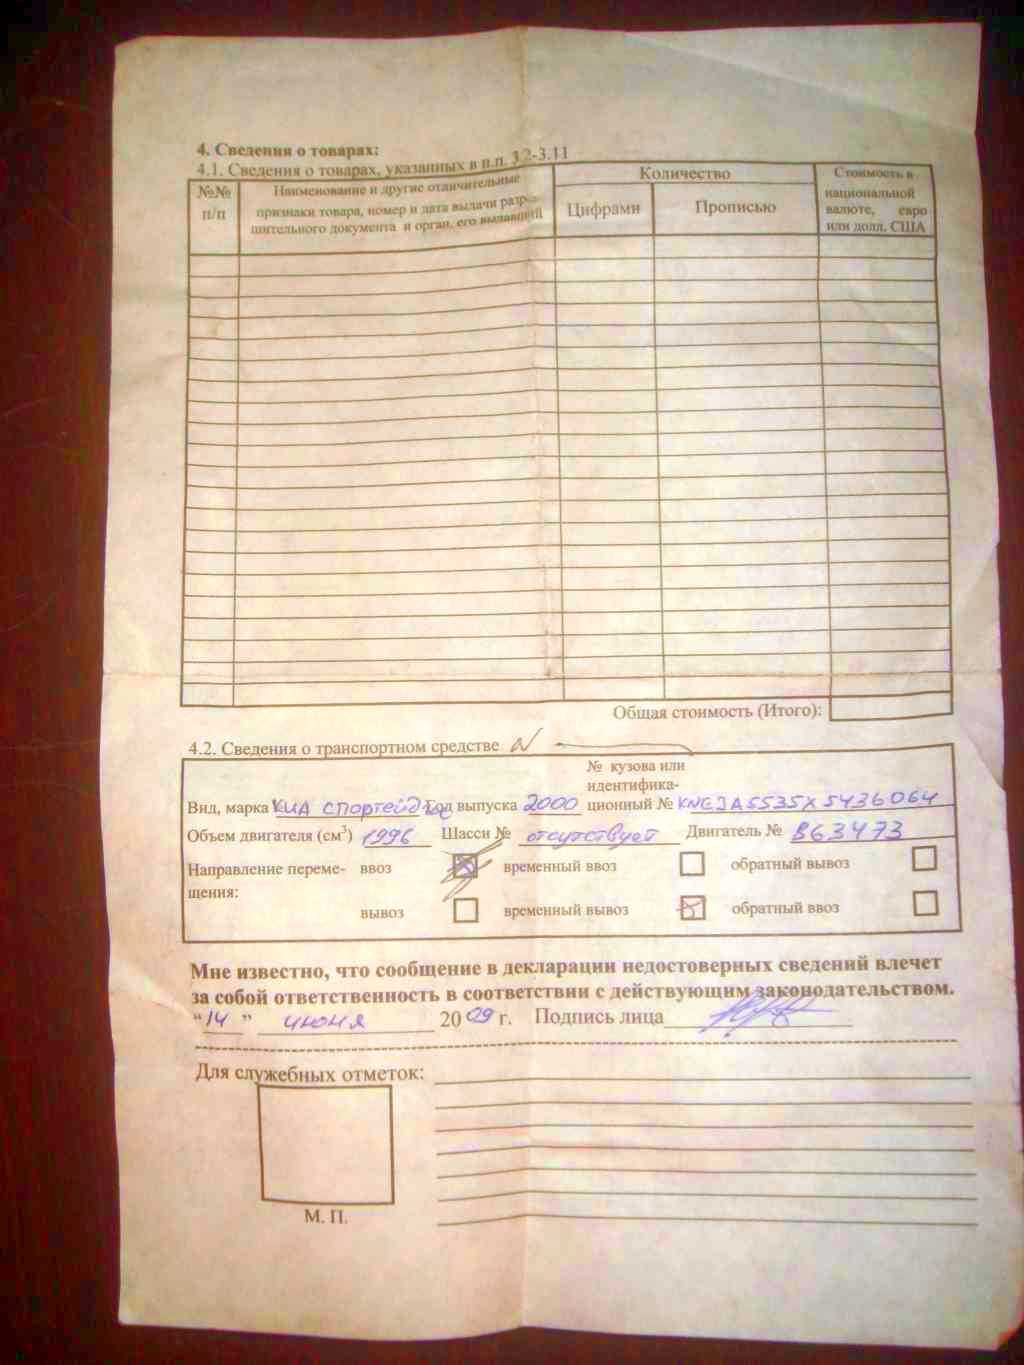 4. Сведения о товарах:
4.1. Сведения о товарах, указанных в п.п. 3.2-3.11
№№ п/п
Наименование и другие отличительные
признаки товара, номер и дата выдачи разре-
шительного документа и орган, его выдавший
Количество
Цифрами
Прописью
Стоимость в
национальной
валюте, евро
или долл. США
Общая стоимость (Итого):
4.2. Сведения о транспортном средстве
№ кузова или
идентифика-
Вид, марка КИА СПОРТЕЙДЖ Год выпуска 2000 ционный № KNEJA5535X5436064
Объем двигателя (см³) 1996 Шасси № отсутствует Двигатель № 863473
Направление переме- ввоз временный ввоз обратный вывоз
щения:
вывоз временный вывоз обратный ввоз
Мне известно, что сообщение в декларации недостоверных сведений влечет
за собой ответственность в соответствии с действующим законодательством.
“14” июня 2009 г. Подпись лица
Для служебных отметок:
М. П.